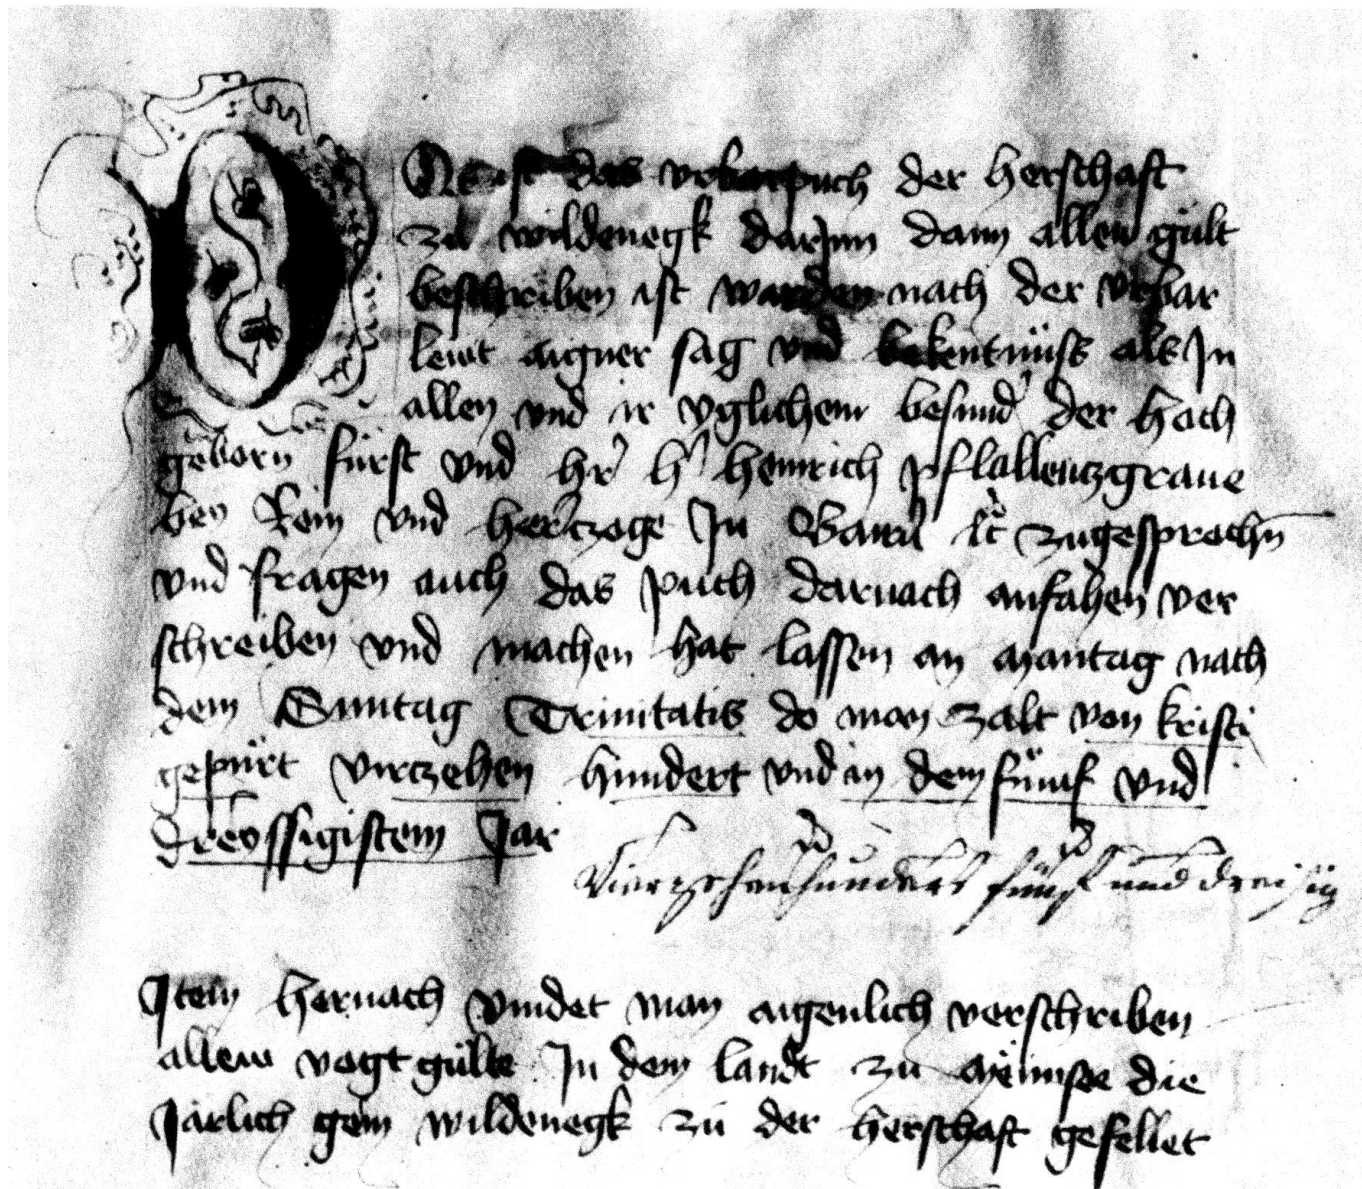 Das ist das vrbarpuch der herschaft
zu wildenegk darJnn dann allew gült
beschriben ist warden nach der vrbar
lewt aigner sag vnd bekentnüss als Jn
allen vnd ir yglichem besund' der hoch
geborn fürst vnd hr' h' heinrich pfallenczgraue
bey Rein vnd herczoge Jn Bairn zugesprochn
vnd fragen auch das puch darnach anfahen ver
schreiben vnd machen hat lassen an mantag nach
dem Suntag Trinitatis do man zalt von kristi
gepürt virczehen hundert vnd in dem fünf vnd
dreyssigistem Jar
Vierzehenhundert fünf und dreisig
Jtem hernach vindet man aigenlich verschriben
allew vogt gülte Jn dem landt zu Mënnsee die
Järlich gem wildenegk zu der herschaft gefellet